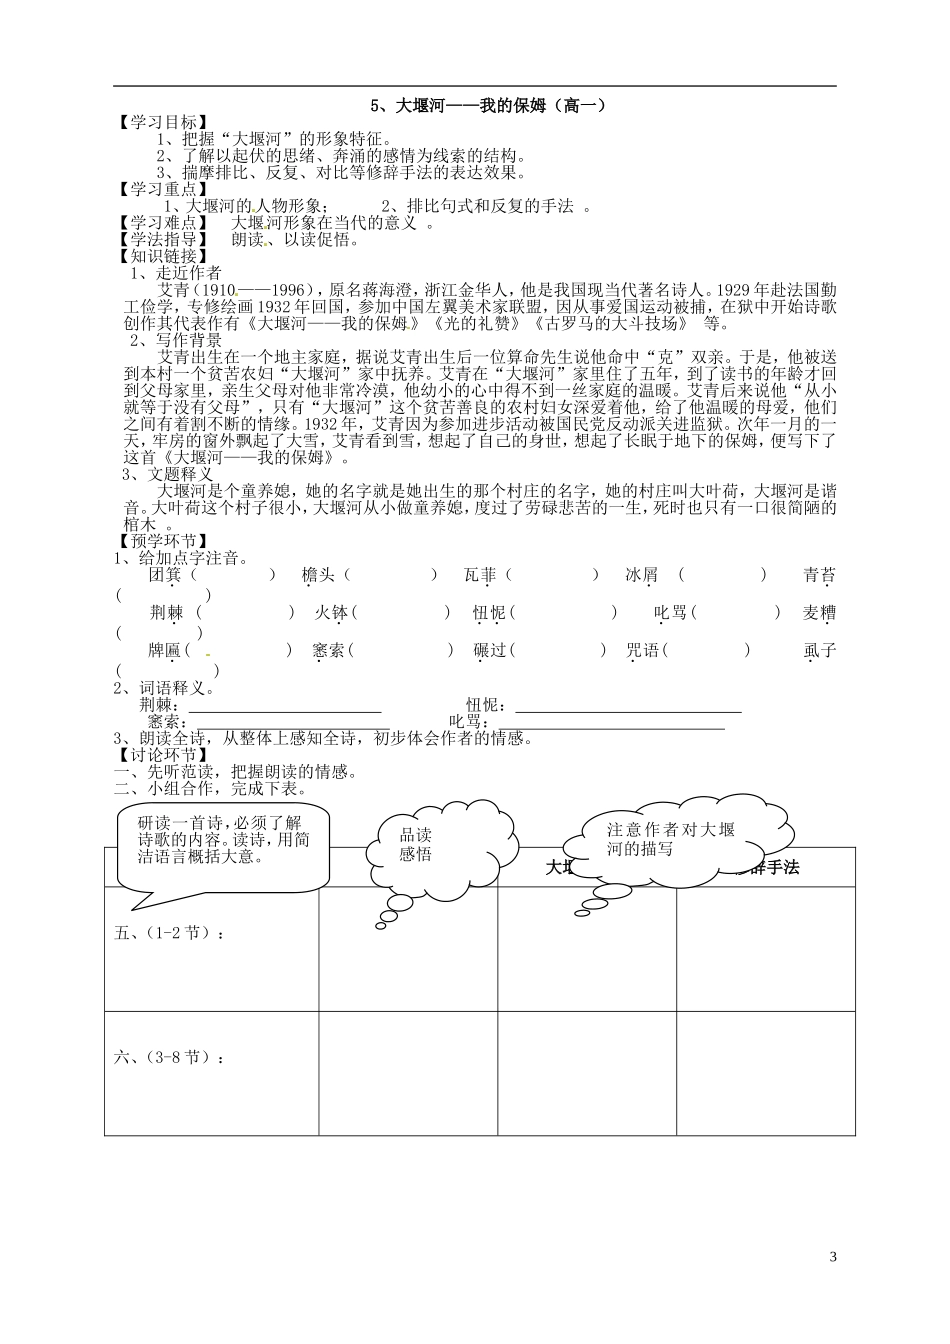 5、大堰河——我的保姆（高一）
【学习目标】
1、把握“大堰河”的形象特征。
2、了解以起伏的思绪、奔涌的感情为线索的结构。
3、揣摩排比、反复、对比等修辞手法的表达效果。
【学习重点】
1、大堰河的人物形象； 2、排比句式和反复的手法 。
【学习难点】 大堰河形象在当代的意义 。
【学法指导】 朗读、以读促悟。
【知识链接】
1、走近作者
艾青（1910——1996），原名蒋海澄，浙江金华人，他是我国现当代著名诗人。1929 年赴法国勤
工俭学，专修绘画 1932 年回国，参加中国左翼美术家联盟，因从事爱国运动被捕，在狱中开始诗歌
创作其代表作有《大堰河——我的保姆》《光的礼赞》《古罗马的大斗技场》 等。
2、写作背景
艾青出生在一个地主家庭，据说艾青出生后一位算命先生说他命中“克”双亲。于是，他被送
到本村一个贫苦农妇“大堰河”家中抚养。艾青在“大堰河”家里住了五年，到了读书的年龄才回
到父母家里，亲生父母对他非常冷漠，他幼小的心中得不到一丝家庭的温暖。艾青后来说他“从小
就等于没有父母”，只有“大堰河”这个贫苦善良的农村妇女深爱着他，给了他温暖的母爱，他们
之间有着割不断的情缘。1932 年，艾青因为参加进步活动被国民党反动派关进监狱。次年一月的一
天，牢房的窗外飘起了大雪，艾青看到雪，想起了自己的身世，想起了长眠于地下的保姆，便写下了
这首《大堰河——我的保姆》。
3、文题释义
大堰河是个童养媳，她的名字就是她出生的那个村庄的名字，她的村庄叫大叶荷，大堰河是谐
音。大叶荷这个村子很小，大堰河从小做童养媳，度过了劳碌悲苦的一生，死时也只有一口很简陋的
棺木 。
【预学环节】
1、给加点字注音。
团箕（ ） 檐头（ ） 瓦菲（ ） 冰屑 （ ） 青苔
( )
荆棘 ( ) 火钵( ) 忸怩( ) 叱骂( ) 麦糟
( )
牌匾( ) 窸索( ) 碾过( ) 咒语( ) 虱子
( )
2、词语释义。
荆棘： 忸怩：
窸索： 叱骂：
3、朗读全诗，从整体上感知全诗，初步体会作者的情感。
【讨论环节】
一、先听范读，把握朗读的情感。
二、小组合作，完成下表。
研读一首诗，必须了解
诗歌的内容。读诗，用简
洁语言概括大意。
品读
感悟
注意作者对大堰
河的描写
大堰
辞手法
五、（1-2 节）：
六、（3-8 节）：
3